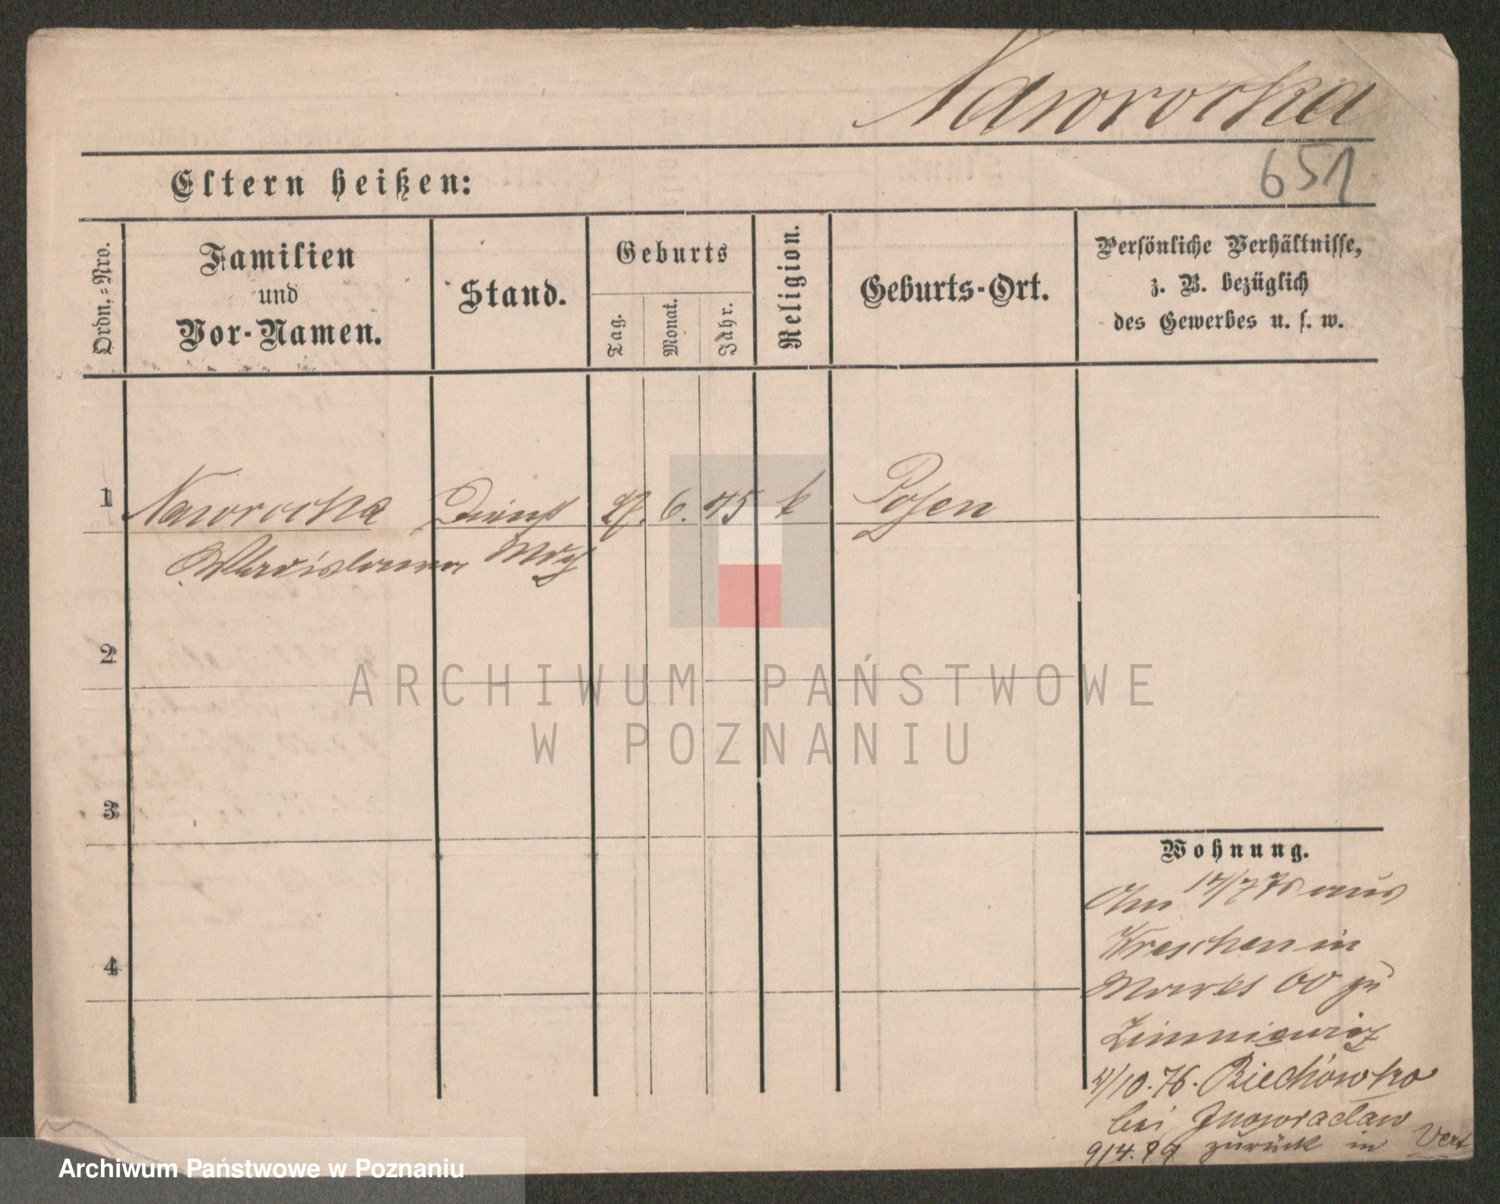 Naworocka
651
Eltern heißen:
Ordn.-Nro.
Familien
und
Vor-Namen.
Stand.
Geburts
Tag.
Monat.
Jahr.
Religion.
Geburts-Ort.
Persönliche Verhältnisse,
z. B. bezüglich
des Gewerbes u. s. w.
1
Naworocka
Dienst
27. 6. 45
k
Posen
Wladislawa
2
ARCHIWUM PAŃSTWOWE
W POZNANIU
3
Wohnung.
Am 14/7 76 aus
Wreschen in
4
Markt 60 zu
Zimniewicz
4/10. 76. Biechówko
bei Inowraclaw
9/4. 79 zurück in
Archiwum Państwowe w Poznaniu